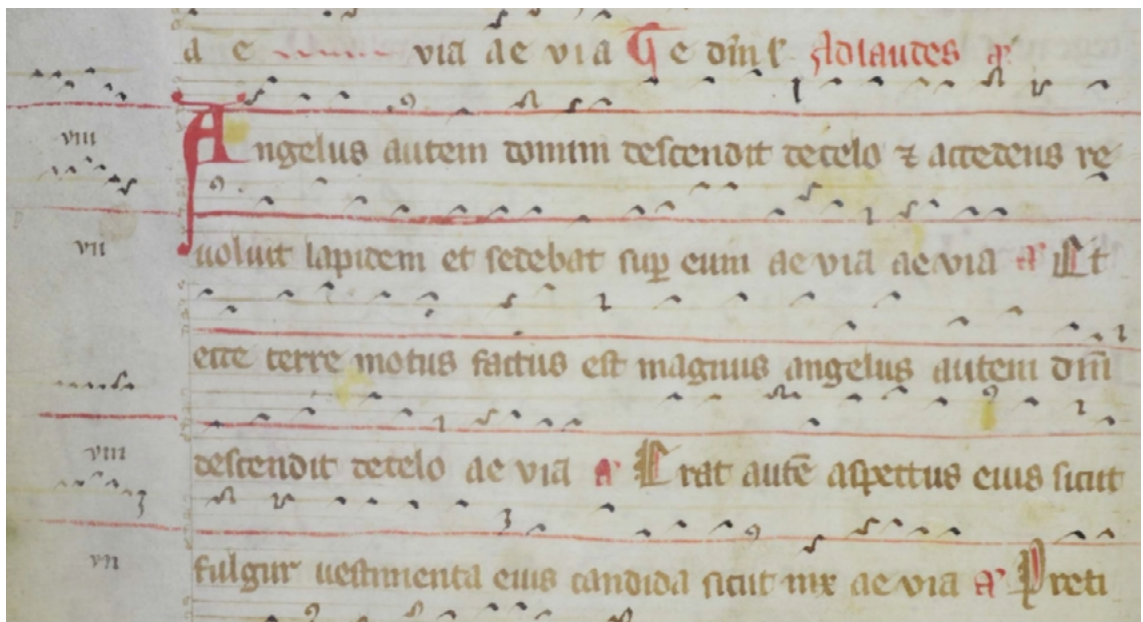 a e via ae via G e dm̄ r Ad laudes a
viii
Angelus autem domini descendit de celo ⁊ accedens re
uoluit lapidem et sedebat sup eum ae via ae via a Et
vii
ecce terre motus factus est magnus angelus autem dnī
descendit de celo ae via a Erat autē aspectus eius sicut
viii
fulgur uestimenta eius candida sicut nix ae via a Preti
vii